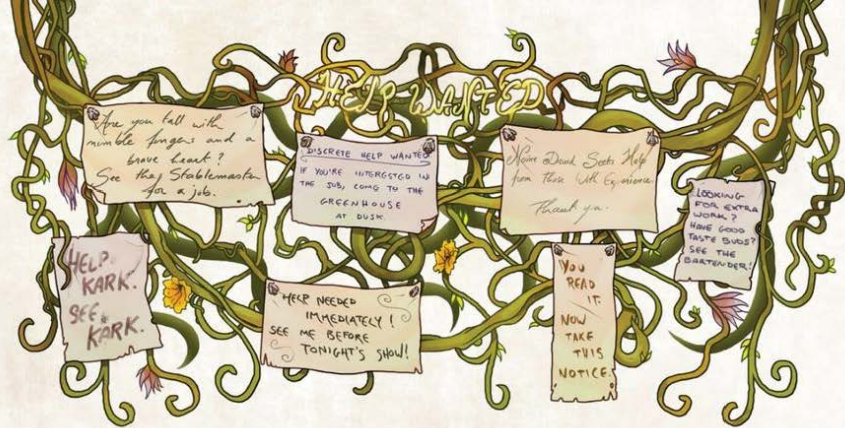 HELP WANTED
Are you tall with
nimble fingers and a
brave heart?
See the Stablemaster
for a job.
DISCRETE HELP WANTED
IF YOU'RE INTERESTED IN
THE JOB, COME TO THE
GREENHOUSE
AT DUSK.
Naive Dowd Seeks Help
from Those With Experience
Thank you.
LOOKING
FOR EXTRA
WORK?
HAVE GOOD
TASTE BUDS?
SEE THE
BARTENDER!
HELP
KARK.
SEE
KARK.
HELP NEEDED
IMMEDIATELY!
SEE ME BEFORE
TONIGHT'S SHOW!
YOU
READ
IT.
NOW
TAKE
THIS
NOTICE.